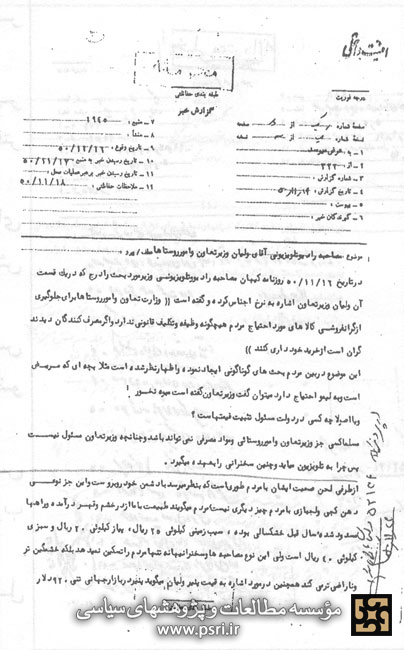 درجه فوریت
طبقه بندی حفاظتی
گزارش خبر
صفحه شماره یک از صفحه
نسخه شماره از نسخه
۱ ـ به
۲ ـ از : ۳۲۲
۳ ـ شماره گزارش :
۴ ـ تاریخ گزارش :
۵ ـ پیوست :
۶ ـ گیرندگان خبر :
۷ ـ منبع : ۱۹۴۵
۸ ـ منشأ :
۹ ـ تاریخ وقوع : ۵۰/۱۱/۱۶
۱۰ ـ تاریخ رسیدن خبر به منبع : ۵۰/۱۱/۱۷
۱۱ ـ تاریخ رسیدن خبر برهبرعملیات محل : ۵۰/۱۱/۱۸
۱۲ ـ ملاحظات حفاظتی :
موضوع ـ مصاحبه رادیوتلویزیونی آقای ولیان وزیرتعاون وامورروستاها
درتاریخ ۵۰/۱۱/۱۶ روزنامه کیهان مصاحبه رادیووتلویزیونی وزیرمورد بحث رادرج که دریک قسمت
آن ولیان وزیرتعاون اشاره به نرخ اجناس کرده وگفته است (( وزارت تعاون وامورروستاها برای جلوگیری
ازگرانفروشی کالا های مورد احتیاج مردم هیچگونه وظیفه وتکلیف قانونی ندارد واگرمصرف کنندگان دیدند
گران است ازخرید خود داری کنند ))
این موضوع دربین مردم بحث های گوناگونی ایجاد نموده واظهارنظرشده است مثلا بچه ای که مریض
است وبه لیمو احتیاج دارد میتوان گفت وزیرتعاون گفته است میوه نخور !
ویا اصولا چه کسی دردولت مسئول تثبیت قیمتهاست ؟
مسلما کسی جز وزیرتعاون وامورروستائی ومواد مصرفی نمی تواند باشد وچنانچه وزیرتعاون مسئول نیست
پس چرا به تلویزیون میاید وچنین سخنرانی رابعهده میگیرد .
ازطرفی لحن صحبت ایشان با مردم طوری است که بنظرمیرسد با دشمن خود روبروست واین جز نوعی
دهن کجی ولجبازی با مردم چیز دیگری نیست مردم میگویند طبیعت با ما ازدرخشم وقهر درآمده وراهها
مسدود شده و سال قبل خشکسالی بوده ، سیب زمینی کیلوئی ۲۵ ریال، پیاز کیلوئی ۳۰ ریال و سبزی
کیلوئی ۴۰ ریال است ولی این نوع مصاحبه ها وسخنرانیها نه تنها مردم راتسکین نمید هد بلکه خشمگین تر
وناراضی ترمی کند همچنین درمورد اشاره به قیمت پنیر ولیان میگوید پنیردربازارجهانی تنی ۹۲۰ دلار
مؤسسه مطالعات و پژوهشهای سیاسی
www.psri.ir